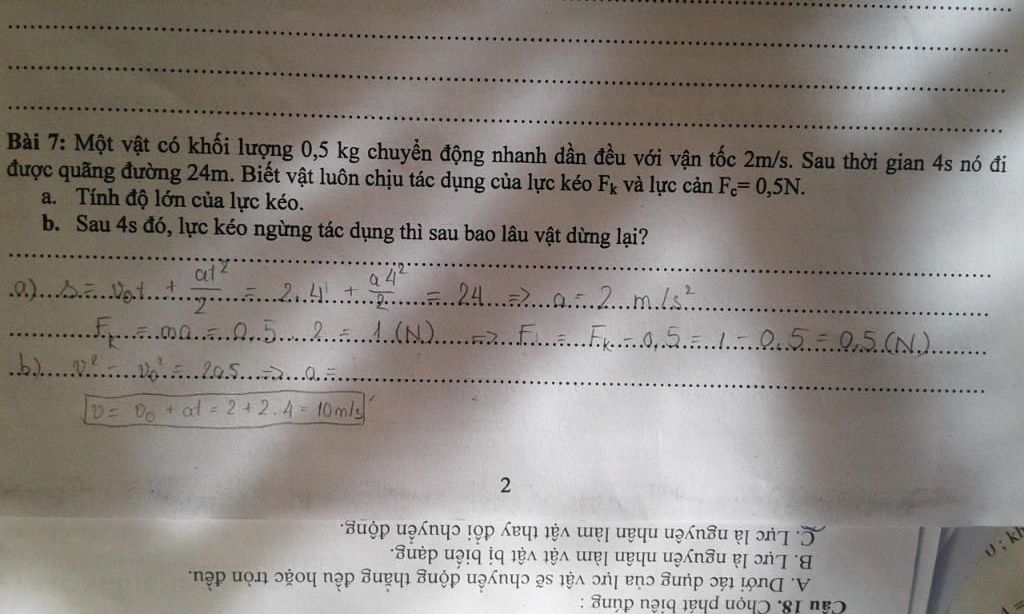 Bài 7: Một vật có khối lượng 0,5 kg chuyển động nhanh dần đều với vận tốc 2m/s. Sau thời gian 4s nó đi
được quãng đường 24m. Biết vật luôn chịu tác dụng của lực kéo Fₖ và lực cản F꜀= 0,5N.
a. Tính độ lớn của lực kéo.
b. Sau 4s đó, lực kéo ngừng tác dụng thì sau bao lâu vật dừng lại?
a) s = v₀t + at²/2 = 2.4 + a4²/2 = 24 => a = 2 m/s²
Fₖ = ma = 0,5 . 2 = 1 (N) => F = Fₖ - 0,5 = 1 - 0,5 = 0,5 (N)
b) v² - v₀² = 2as => a =
v = v₀ + at = 2 + 2.4 = 10m/s
2
Câu 18. Chọn phát biểu đúng :
A. Dưới tác dụng của lực vật sẽ chuyển động thẳng đều hoặc tròn đều.
B. Lực là nguyên nhân làm vật vật bị biến dạng.
C. Lực là nguyên nhân làm vật thay đổi chuyển động.